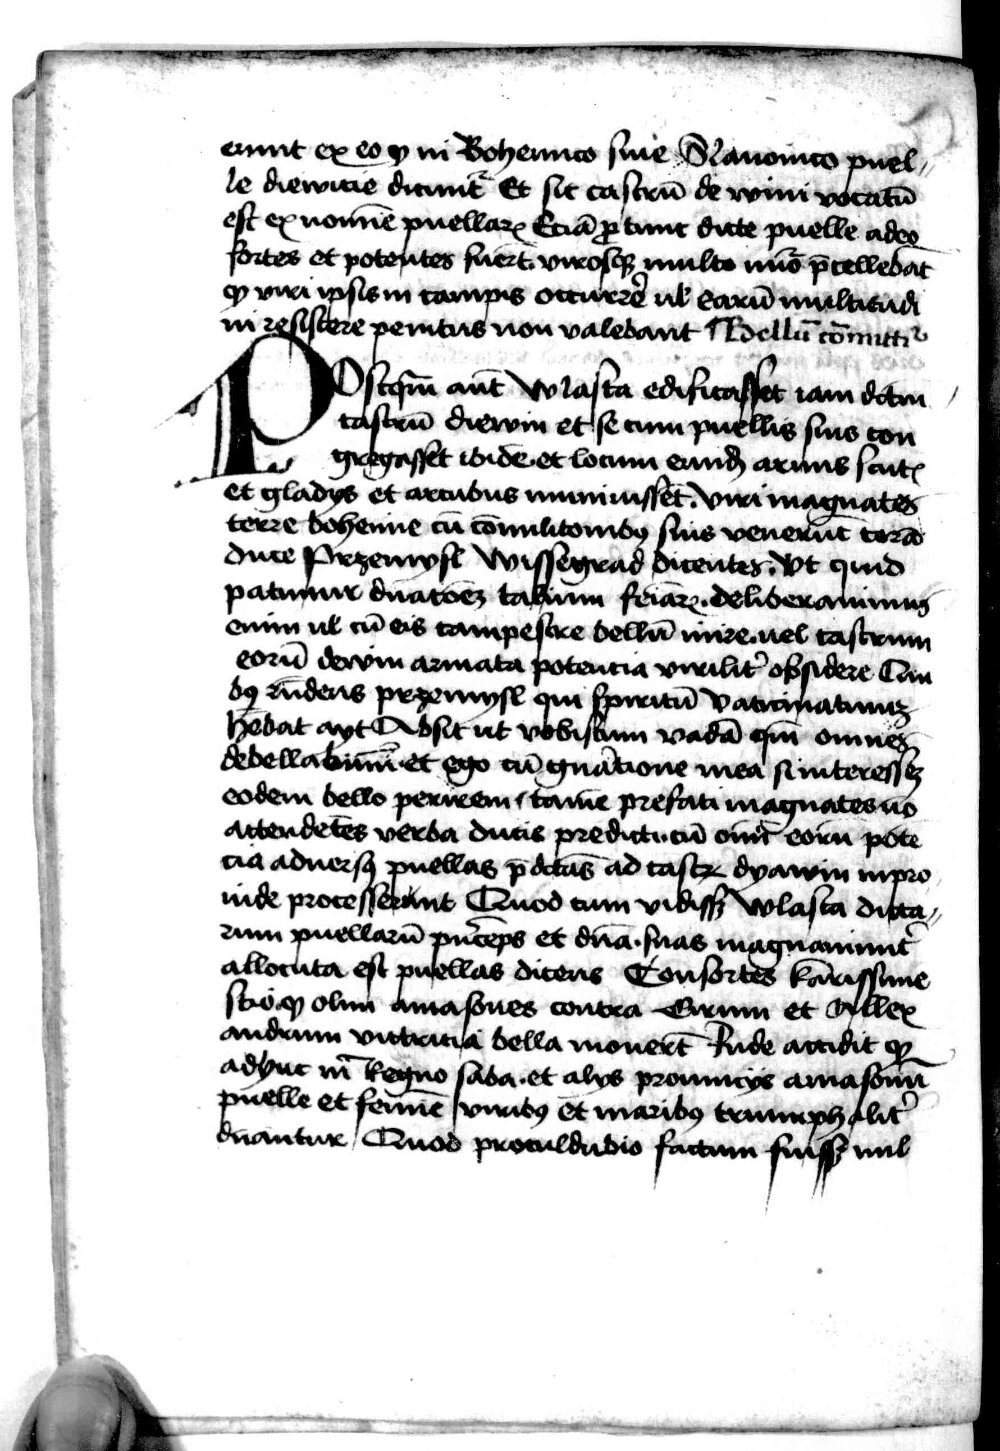 erunt ex eo ꝙ in Bohemico siue Slauonico puel〃
le diewicie dicunt᷑ Et sic castrū de wini vocatū
est ex nomīe puellaꝝ Eciā ꝓ tunc dicte puelle adeo
fortes et potentes fuert̄. virosqꝫ multo mīo p̄cellebāt
ꝙ viri ipsis in campis occurre᷑ ul' earū multitudi
ni resistere penitus non valebant Bellū cōmitti᷑
POstqm̄ aut̄ Wlasta edificasset iam dctm̄
castrū diewin et se cum puellis suis con
gregasset ibidē et locum eund' armis scut'
et gladys et arcubus muniuisset̄. Viri magnates
terre bohemie cū cōmilitonibꝰ suis venerūt corā
duce Przemysl Wissegrad dicentes. Ut quid
patimur dn̄acōeꝫ talium feīaꝝ. deliberauimus
enim ul' cū eis campestre bellū inire. uel castrum
eorū dewin armata potencia virilit᷑ obsidere Qui
bꝰ rn̄dens przemysl qui spiritū vaticinatiuuꝫ
hēbat ayt Absit ut vobiscum vadā qm̄ omnes
debellabimi᷑ et ego cū gn̄atione mea si interesseꝫ
eodem bello perirem / tamē prefati magnates nō
attendētes verba ducis predicti. cū om̄i eorū potē
cia aduersꝰ puellas p̄dctās ad castꝝ dyawin inpro
uide processerunt Quod cum vidissꝫ Wlasta dicta〃
rum puellarū pn̄ceps et dn̄a. suas magnanimit᷑
allocuta est puellas dicens Consortes kārissime
scio ꝙ olim amasones contra Cirum et Allex
andrum victricia bella mouert̄ Vnde accidit ꝙ
adhuc in Regno saba. et alys prouincys amasonū
puelle et femīe viribꝰ et maribꝰ triumphalit᷑
dn̄antur / Quod proculdubio factum fuissꝫ nul